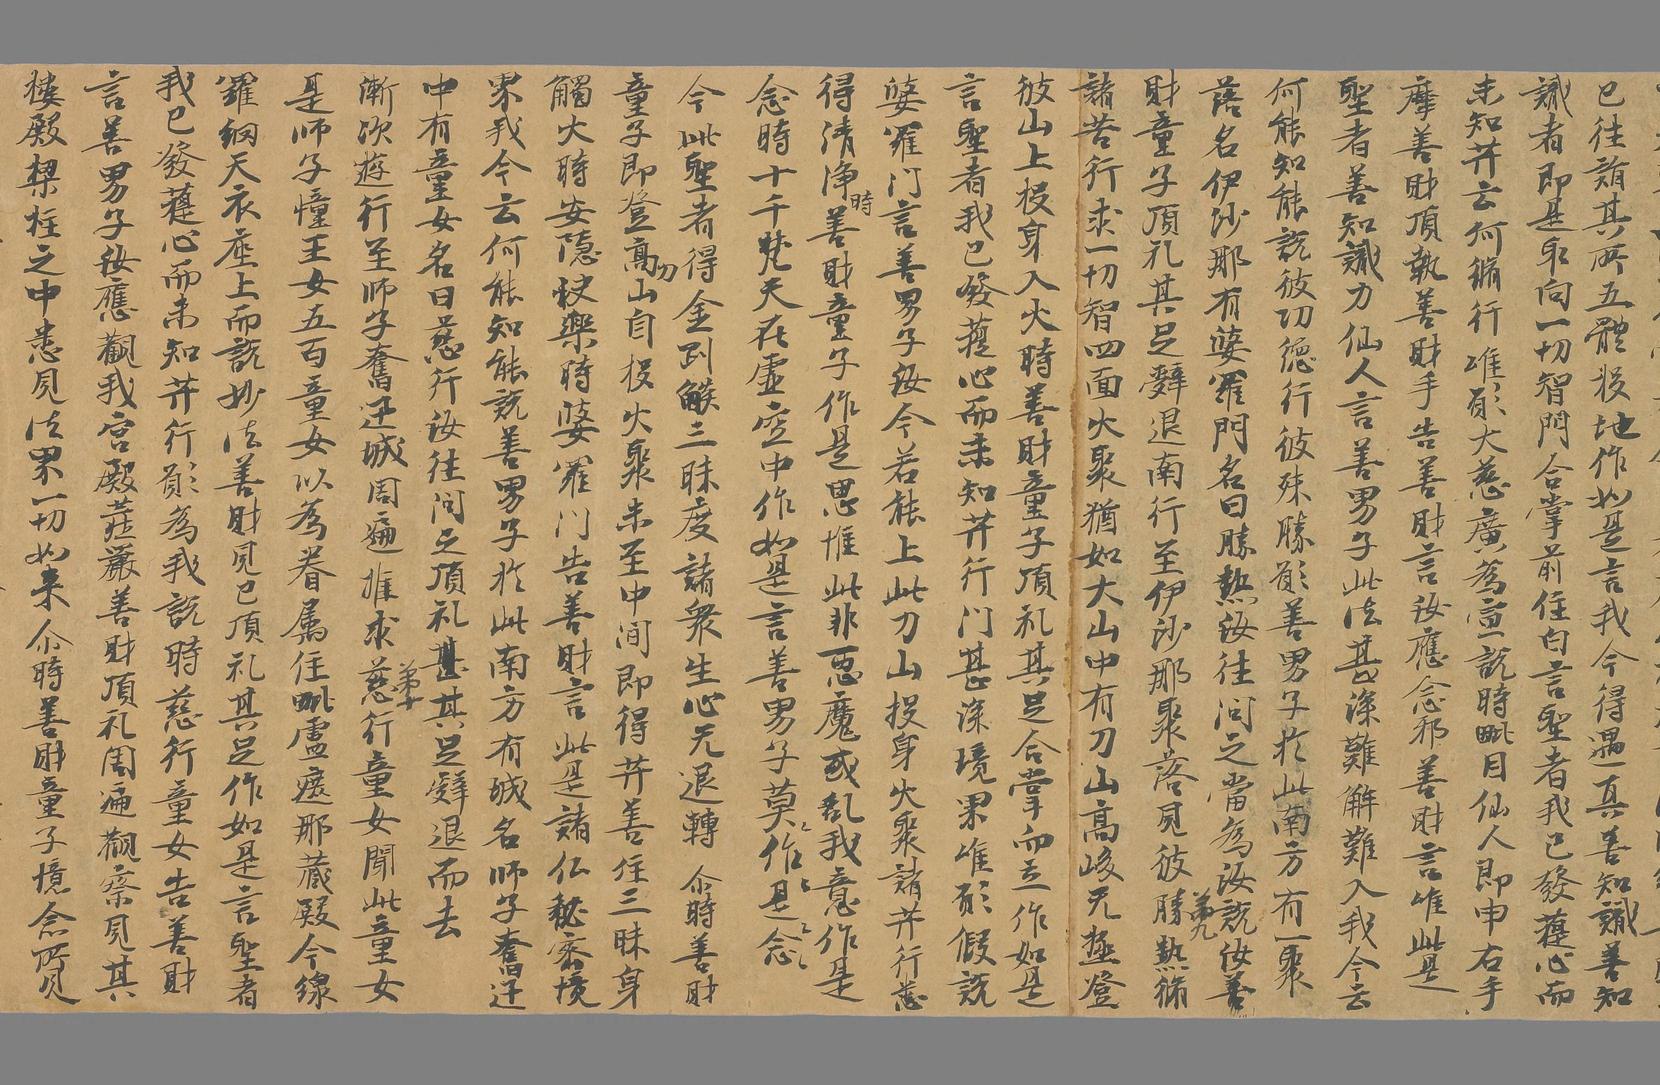 已往詣其所五體投地作如是言我今得遇真善知識善知
識者即是取向一切智門合掌前住白言聖者我已發菩提心而
未知菩薩云何脩行唯願大慈廣為宣說時毗目仙人即申右手
摩善財頂執善財手告善財言汝應念耶善財言唯此是
聖者善知識力仙人言善男子此法甚深難解難入我今云
何能知能說彼功德行彼殊勝願善男子於此南方有一聚
落名伊沙那有婆羅門名曰勝熱汝往問之當為汝說汝善
財童子頂礼其足辭退南行至伊沙那聚落見彼勝熱脩
第九
諸苦行求一切智四面火聚猶如大山中有刀山高峻无極登
彼山上投身入火時善財童子頂礼其足合掌而立作如是
言聖者我已發菩提心而未知菩薩行門甚深境界唯願假說
婆羅門言善男子汝今若能上此刀山投身火聚諸菩薩行悉
得清淨時善財童子作是思惟此非惡魔或亂我意作是
念時十千梵天在虛空中作如是言善男子莫作是念
今此聖者得金剛𦦨三昧度諸衆生心无退轉尒時善財
童子即登高刀山自投火聚未至中間即得菩薩善住三昧身
觸火時安隱快樂時婆羅門告善財言此是諸仏秘密境
界我今云何能知能說善男子於此南方有城名師子奮迅
中有童女名曰慈行汝往問之頂礼其足辭退而去
漸次遊行至師子奮迅城周遍推求慈行童女聞此童女
第十
是師子幢王女五百童女以為眷属住毗盧遮那藏殿今線
羅網天衣座上而說妙法善財見已頂礼其足作如是言聖者
我已發菩提心而未知菩薩行願為我說時慈行童女告善財
言善男子汝應觀我宮殿莊嚴善財頂礼周遍觀察見其
樓殿樑柱之中悉見法界一切如来尒時善財童子憶念所見